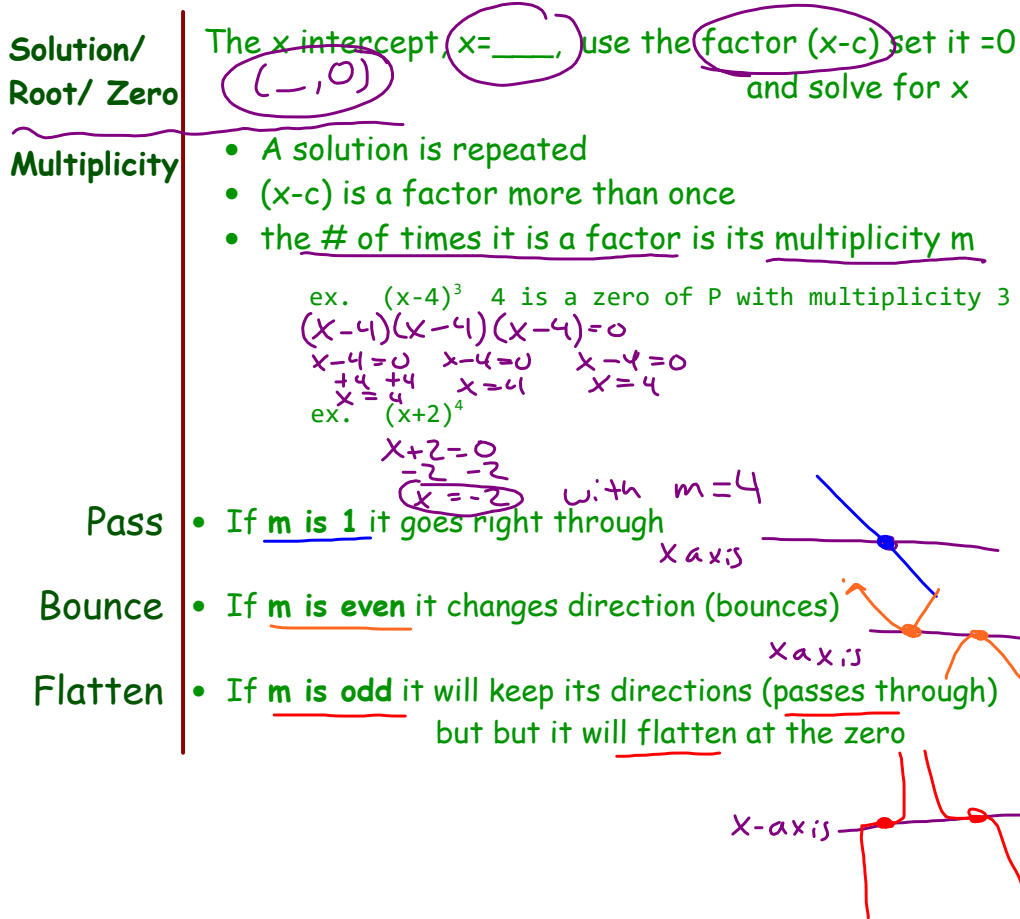 Solution/ The x intercept, x=___, use the factor (x-c) set it =0
Root/ Zero (_,0) and solve for x
Multiplicity • A solution is repeated
• (x-c) is a factor more than once
• the # of times it is a factor is its multiplicity m
ex. (x-4)³ 4 is a zero of P with multiplicity 3
(x-4)(x-4)(x-4)=0
x-4=0 x-4=0 x-4=0
+4 +4 x=4 x=4
x=4
ex. (x+2)⁴
x+2=0
-2 -2
x=-2 with m=4
Pass • If m is 1 it goes right through
x axis
Bounce • If m is even it changes direction (bounces)
x axis
Flatten • If m is odd it will keep its directions (passes through)
but but it will flatten at the zero
x-axis